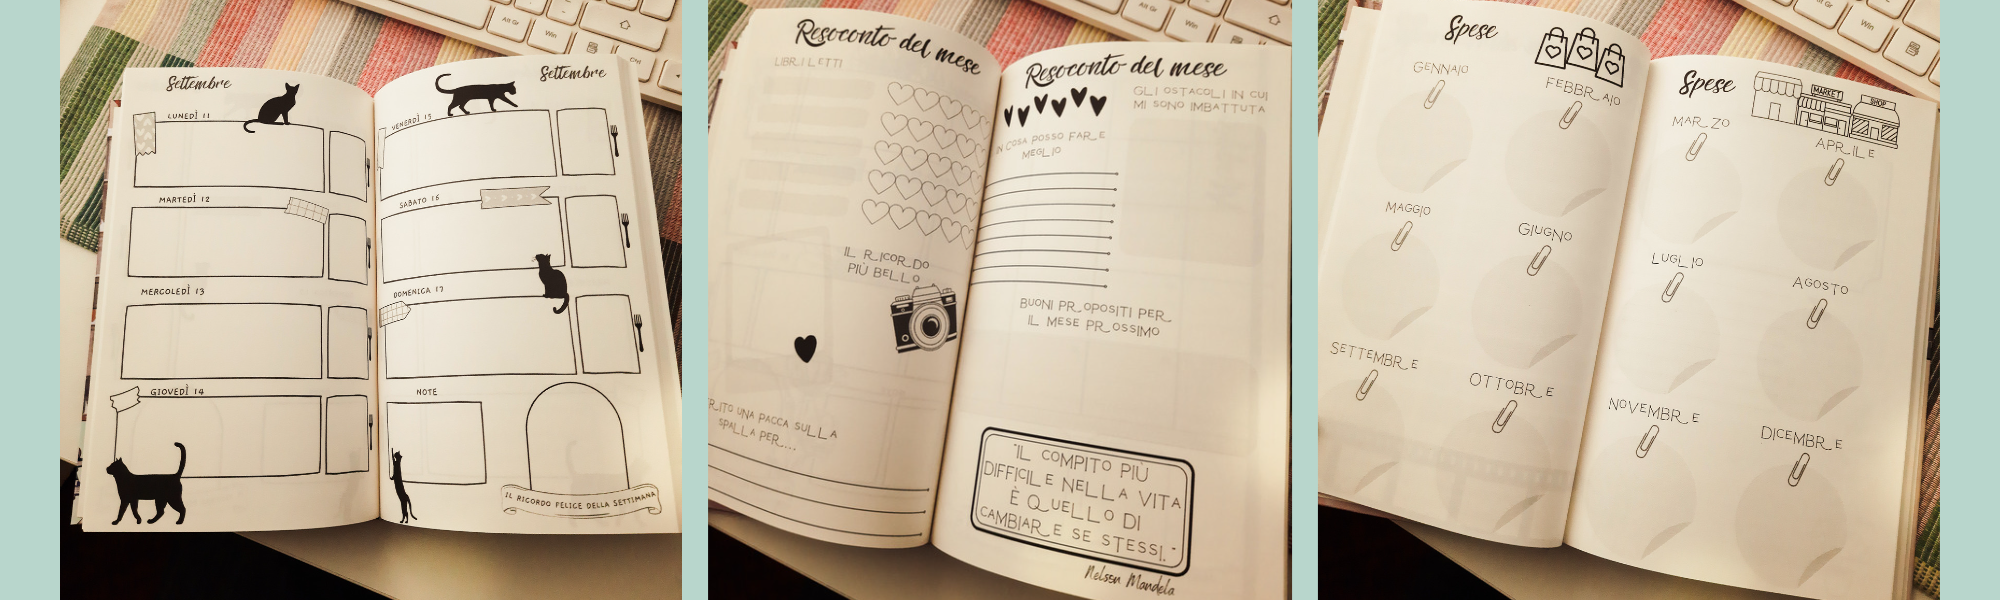 Settembre
LUNEDÌ 11
MARTEDÌ 12
MERCOLEDÌ 13
GIOVEDÌ 14
Settembre
VENERDÌ 15
SABATO 16
DOMENICA 17
NOTE
IL RICORDO FELICE DELLA SETTIMANA
Alt Gr
Win
Ctrl
Resoconto del mese
LIBRI LETTI
IL RICORDO
PIÙ BELLO
UNA PACCA SULLA
SPALLA PER....
Resoconto del mese
GLI OSTACOLI IN CUI
MI SONO IMBATTUTA
IN COSA POSSO FARE
MEGLIO
BUONI PROPOSITI PER
IL MESE PROSSIMO
"IL COMPITO PIÙ
DIFFICILE NELLA VITA
È QUELLO DI
CAMBIARE SE STESSI."
Nelson Mandela
Alt Gr
Win
Spese
GENNAIO
FEBBRAIO
MAGGIO
GIUGNO
SETTEMBRE
OTTOBRE
Spese
MARKET
SHOP
MARZO
APRILE
LUGLIO
AGOSTO
NOVEMBRE
DICEMBRE
Alt Gr
Win